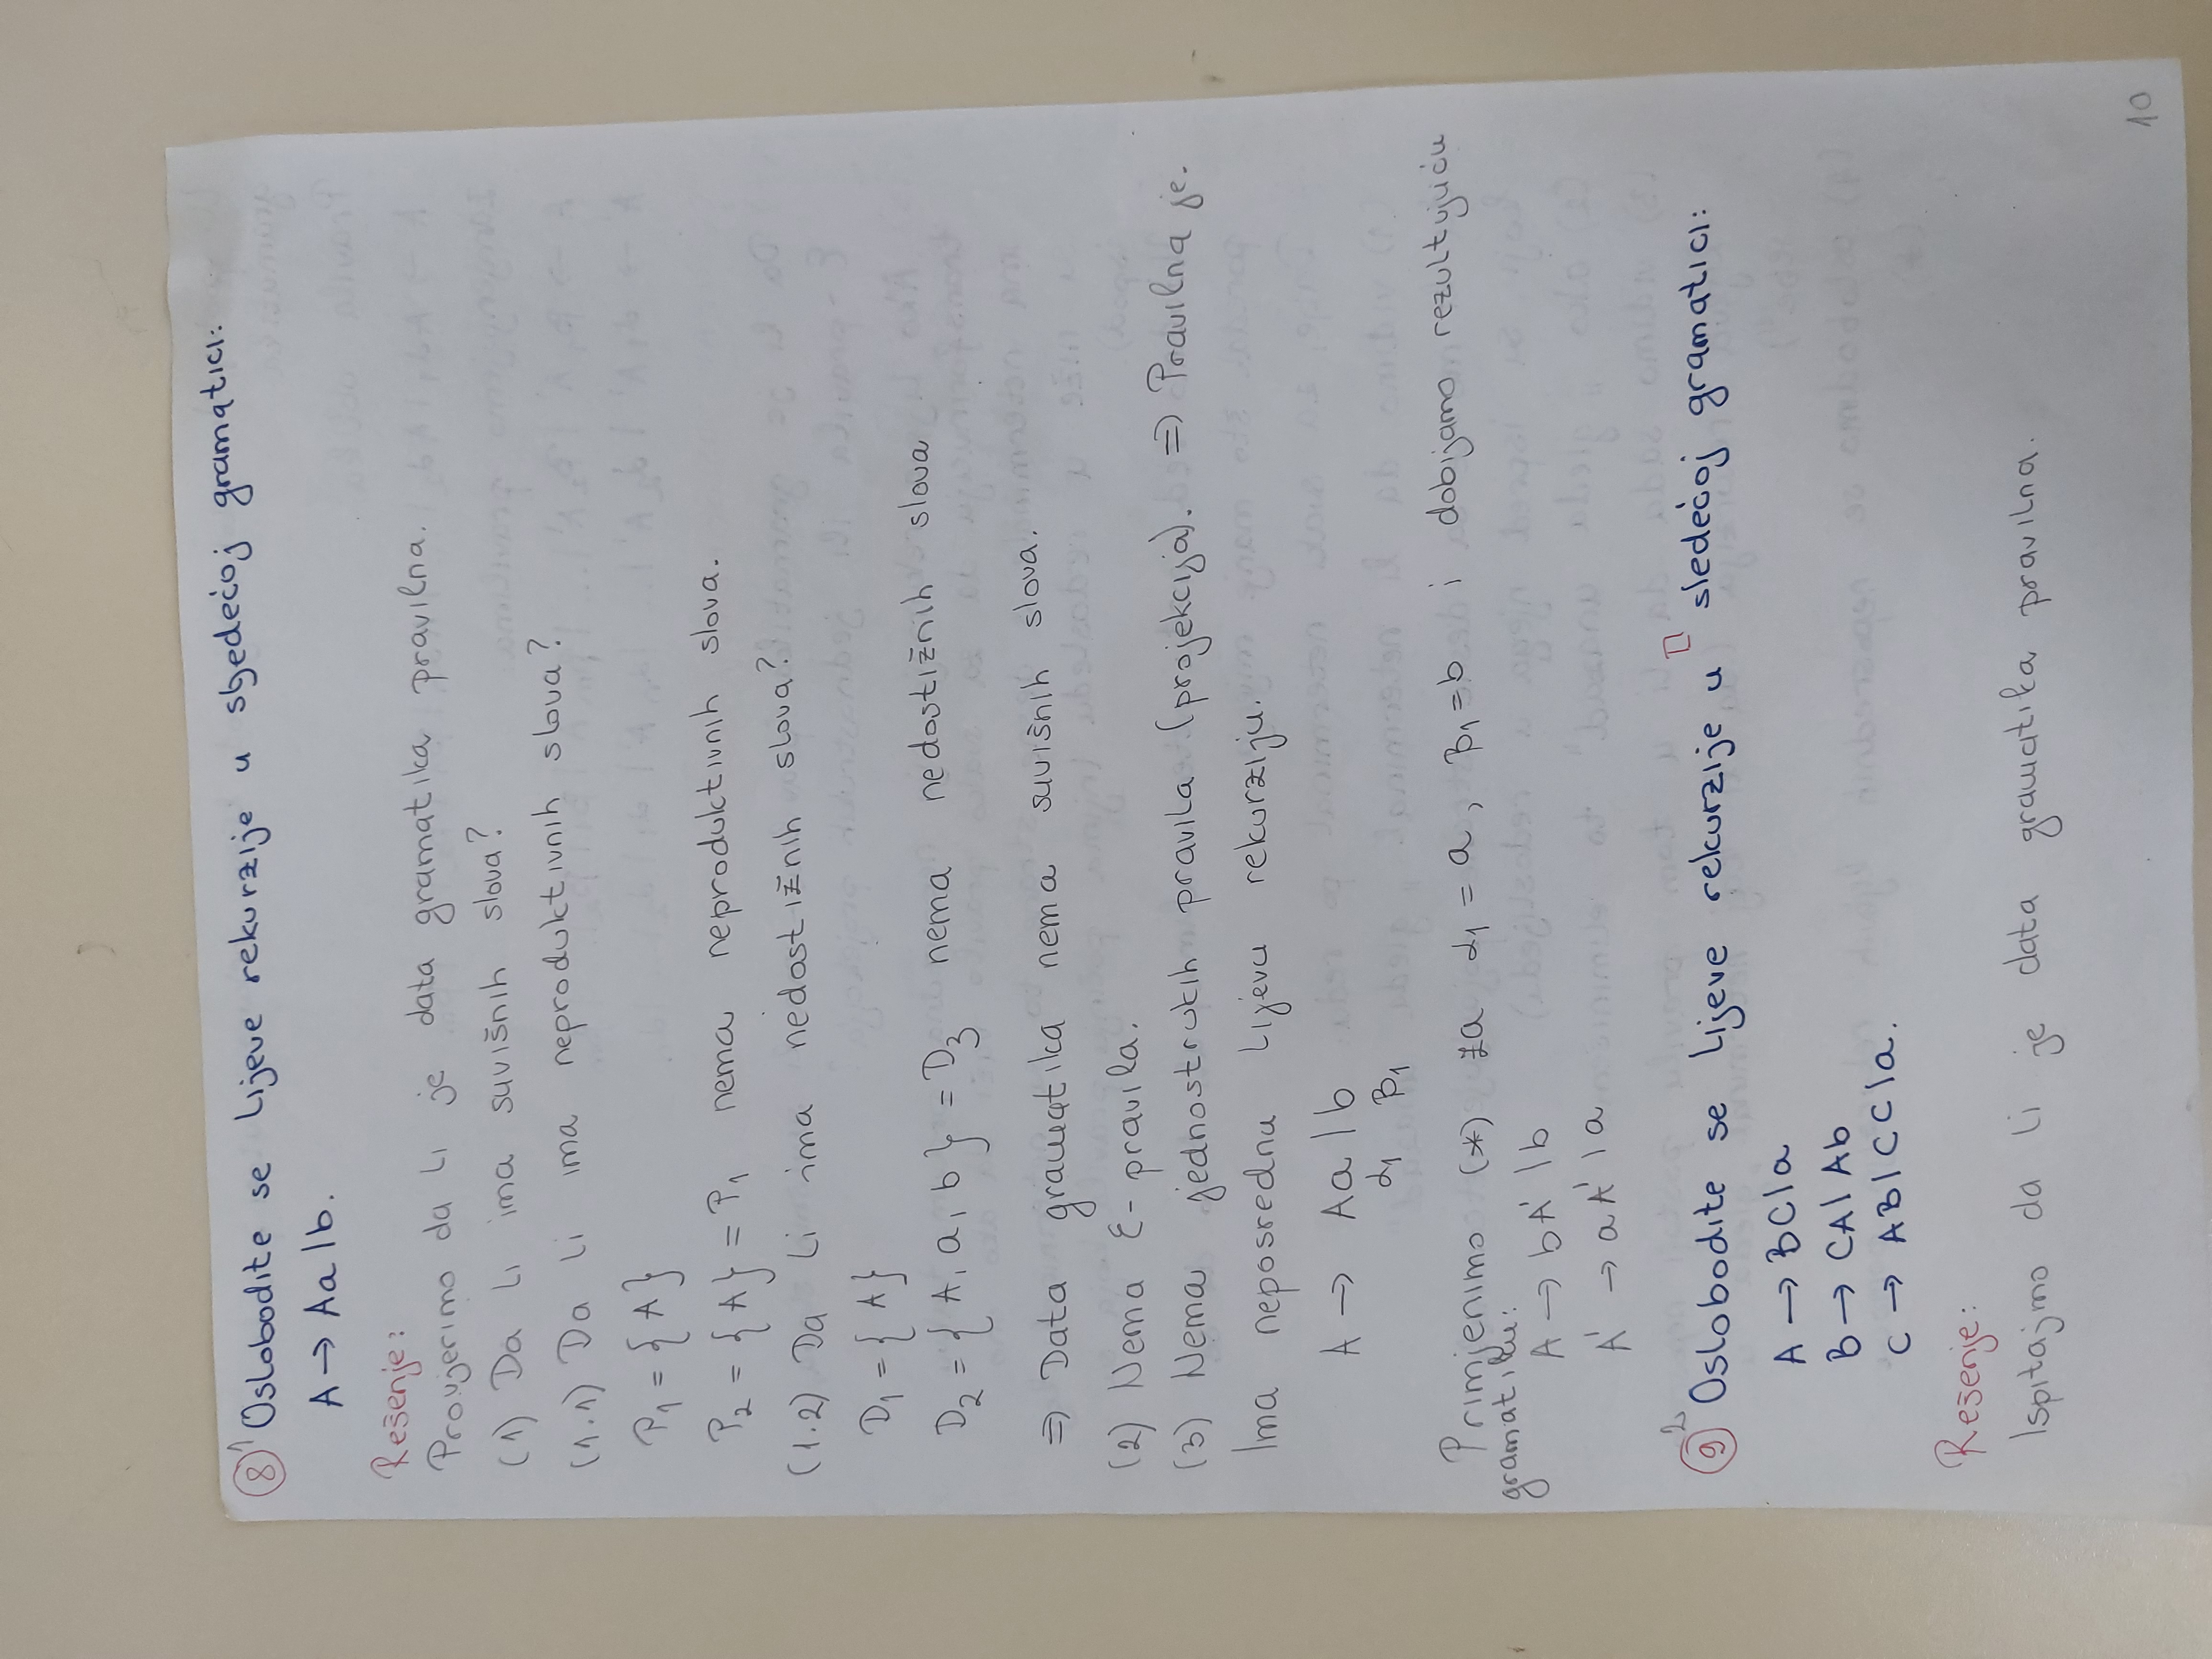 8 1 Oslobodite se lijeve rekurzije u sljedećoj gramatici:
A → Aa | b.
Rešenje:
Provjerimo da li je data gramatika pravilna.
(1) Da li ima suvišnih slova?
(1.1) Da li ima neproduktivnih slova?
P₁ = { A }
P₂ = { A } = P₁ nema neproduktivnih slova.
(1.2) Da li ima nedostižnih slova?
D₁ = { A }
D₂ = { A, a, b } = D₃ nema nedostižnih slova
⇒ Data gramatika nema suvišnih slova.
(2) Nema ε- pravila.
(3) Nema jednostrukih pravila (projekcija). ⇒ Pravilna je.
Ima neposrednu lijevu rekurziju.
A → Aa | b
α₁ β₁
Primjenimo (*) za α₁ = a, β₁ = b i dobijamo rezultujuću
gramatiku:
A → bA' | b
A' → aA' | a
9 2 Oslobodite se lijeve rekurzije u sledećoj gramatici:
A → BC | a
B → CA | Ab
C → AB | CC | a.
Rešenje:
Ispitajmo da li je data gramatika pravilna.
10